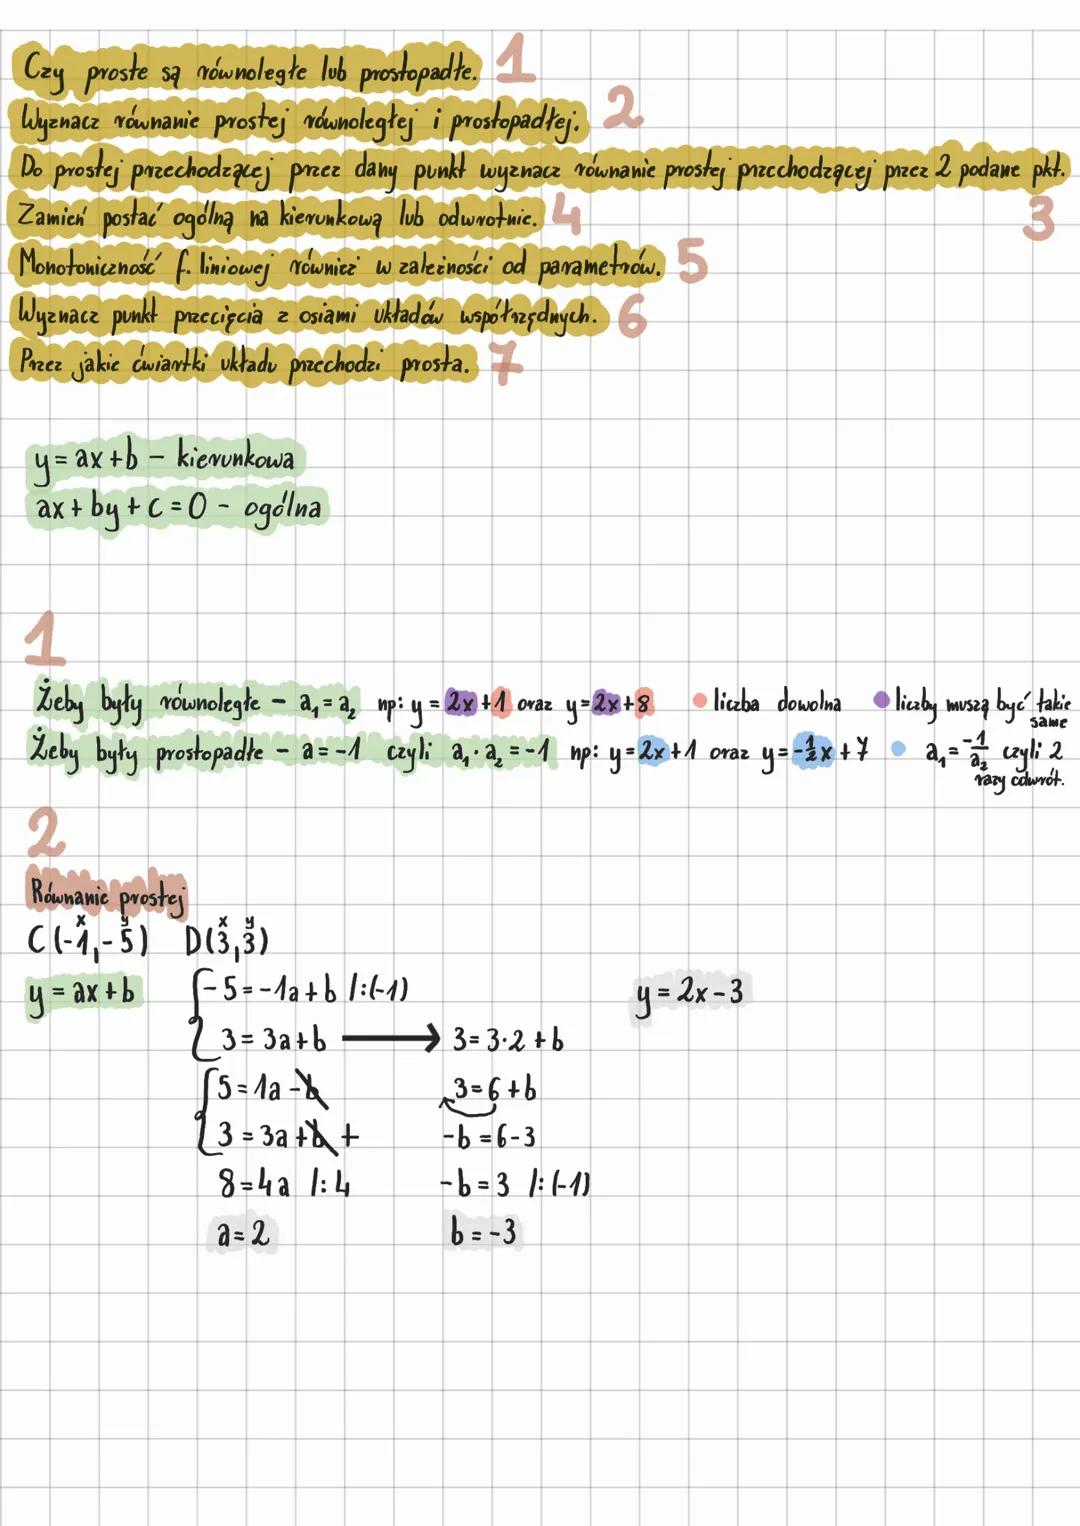 Czy proste są równoległe lub prostopadłe. 1
Wyznacz równanie prostej równoległej i prostopadłej. 2
Do prostej przechodzącej przez dany punkt wyznacz równanie prostej przechodzącej przez 2 podane pkt. 3
Zamień postać ogólną na kierunkową lub odwrotnie. 4
Monotoniczność f. liniowej również w zależności od parametrów. 5
Wyznacz punkt przecięcia z osiami układów współrzędnych. 6
Przez jakie ćwiartki układu przechodzi prosta. 7
y = ax + b – kierunkowa
ax + by + c = 0 - ogólna
1
Żeby były równoległe – a₁ = a₂ np: y = 2x + 1 oraz y = 2x + 8 liczba dowolna liczby muszą być takie same
Żeby były prostopadłe – a = -1 czyli a₁ · a₂ = -1 np: y = 2x + 1 oraz y = -½x + 7 a₁ = -1/a₂ czyli 2 razy odwrót.
2
Równanie prostej
x y x y
C(-1,-5) D(3,3)
y = ax + b { -5 = -1a + b /:(-1) y = 2x - 3
3 = 3a + b → 3 = 3·2 + b
{ 5 = 1a - b 3 = 6 + b
3 = 3a + b + -b = 6 - 3
8 = 4a /:4 -b = 3 /:(-1)
a = 2 b = -3